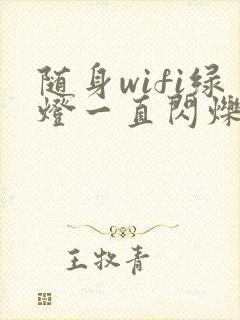 随身wifi绿
燈一直閃爍
王牧青